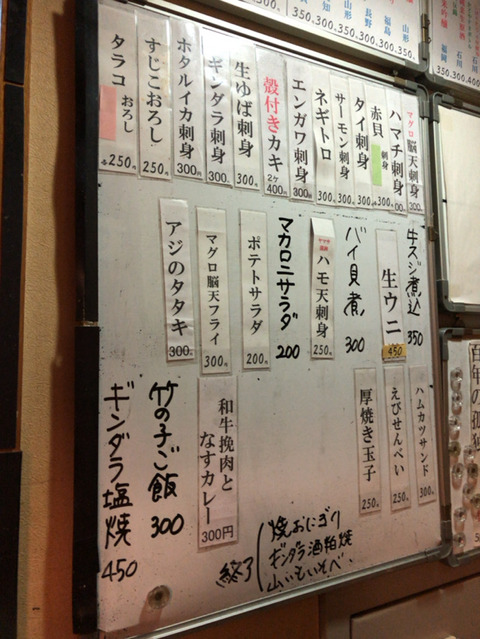 マグロ脳天刺身 300
ハマチ刺身
赤貝刺身 300
タイ刺身 300
サーモン刺身 300
ネギトロ 300
エンガワ刺身 300
殻付きカキ 2ケ 400
生ゆば刺身 300
ギンダラ刺身 300
ホタルイカ刺身 300
すじこおろし 250
タラコ おろし 各250
牛スジ煮込 350
生ウニ 450
バイ貝煮 300
ハモ天刺身 250
マカロニサラダ 200
ポテトサラダ 200
マグロ脳天フライ 300
アジのタタキ 300
ハムカツサンド 300
えびせんべい 250
厚焼き玉子 250
和牛挽肉となすカレー 300円
竹の子ご飯 300
ギンダラ塩焼 450
焼おにぎり
ギンダラ酒粕焼
山いもいそべ
終了
百年の孤独
山形
福島
長野
山形
石川
福岡
350.300.400